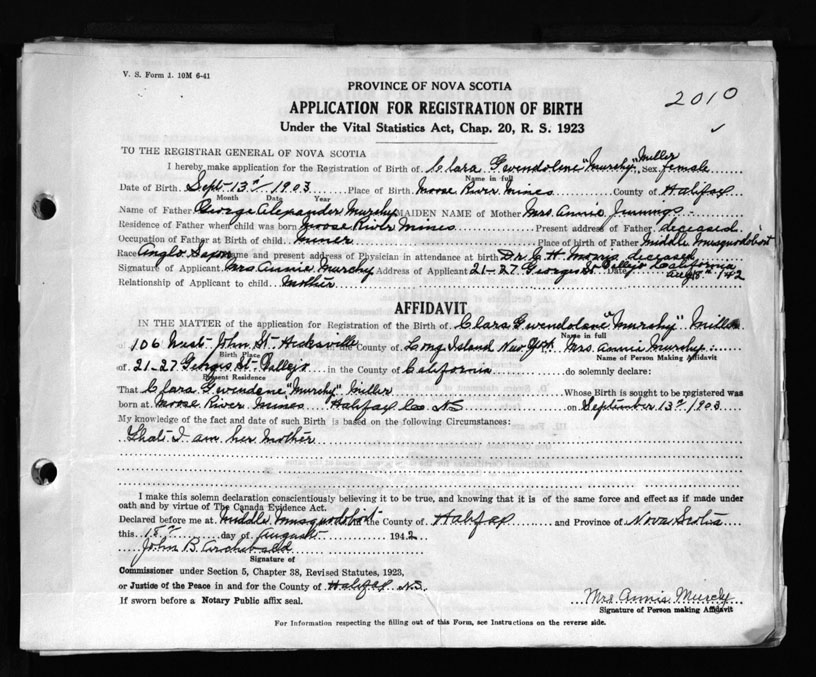 V. S. Form 1. 10M 6-41
PROVINCE OF NOVA SCOTIA
2010
APPLICATION FOR REGISTRATION OF BIRTH
Under the Vital Statistics Act, Chap. 20, R. S. 1923
TO THE REGISTRAR GENERAL OF NOVA SCOTIA
I hereby make application for the Registration of Birth of Clara Gwendolene "Murchy" Miller Sex female
Name in full
Date of Birth Sept 13th 1903 Place of Birth Moose River Mines County of Halifax
Month Date Year
Name of Father George Alexander Murchy MAIDEN NAME of Mother Mrs. Annie Jennings
Residence of Father when child was born Moose River Mines Present address of Father deceased
Occupation of Father at Birth of child miner Place of birth of Father Middle Musquodoboit
Race Anglo Saxon Name and present address of Physician in attendance at birth Dr. C. H. Morris deceased
Signature of Applicant Mrs Annie Murchy Address of Applicant 21-27 Georgia St Vallejo California Date Aug 18th 1942
Relationship of Applicant to child mother
AFFIDAVIT
IN THE MATTER of the application for Registration of the Birth of Clara Gwendolene "Murchy" Miller
Name in full
106 West John St Hicksville the County of Long Island New York Mrs. Annie Murchy
Birth Place Name of Person Making Affidavit
of 21-27 Georgia St. Vallejo in the County of California do solemnly declare:
Present Residence
That Clara Gwendene "Murchy" Miller Whose Birth is sought to be registered was
born at Moose River Mines Halifax Co NS on September 13th 1903
My knowledge of the fact and date of such Birth is based on the following Circumstances:
That I am her mother
I make this solemn declaration conscientiously believing it to be true, and knowing that it is of the same force and effect as if made under
oath and by virtue of The Canada Evidence Act.
Declared before me at Middle Musquodoboit the County of Halifax and Province of Nova Scotia
this 18th day of August 1942
John B. Archibald
Signature of
Commissioner under Section 5, Chapter 38, Revised Statutes, 1923,
or Justice of the Peace in and for the County of Halifax N.S.
If sworn before a Notary Public affix seal.
Mrs. Annie Murchy
Signature of Person making Affidavit
For Information respecting the filling out of this Form, see Instructions on the reverse side.